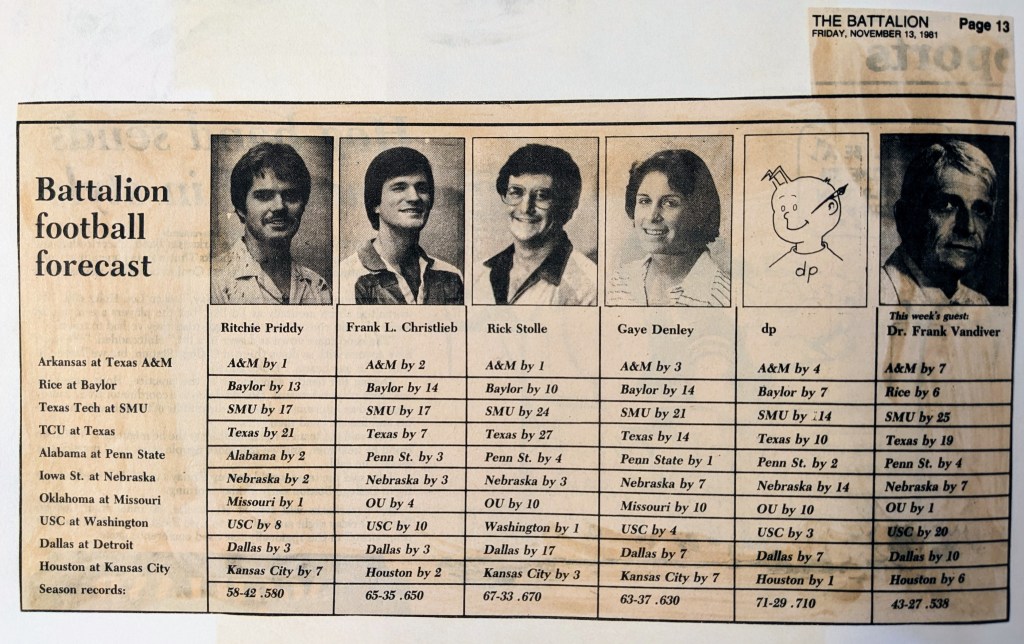 THE BATTALION Page 13
FRIDAY, NOVEMBER 13, 1981
Battalion
football
forecast
dp
This week's guest:
Ritchie Priddy Frank L. Christlieb Rick Stolle Gaye Denley dp Dr. Frank Vandiver
Arkansas at Texas A&M A&M by 1 A&M by 2 A&M by 1 A&M by 3 A&M by 4 A&M by 7
Rice at Baylor Baylor by 13 Baylor by 14 Baylor by 10 Baylor by 14 Baylor by 7 Rice by 6
Texas Tech at SMU SMU by 17 SMU by 17 SMU by 24 SMU by 21 SMU by 14 SMU by 25
TCU at Texas Texas by 21 Texas by 7 Texas by 27 Texas by 14 Texas by 10 Texas by 19
Alabama at Penn State Alabama by 2 Penn St. by 3 Penn St. by 4 Penn State by 1 Penn St. by 2 Penn St. by 4
Iowa St. at Nebraska Nebraska by 2 Nebraska by 3 Nebraska by 3 Nebraska by 7 Nebraska by 14 Nebraska by 7
Oklahoma at Missouri Missouri by 1 OU by 4 OU by 10 Missouri by 10 OU by 10 OU by 1
USC at Washington USC by 8 USC by 10 Washington by 1 USC by 4 USC by 3 USC by 20
Dallas at Detroit Dallas by 3 Dallas by 3 Dallas by 17 Dallas by 7 Dallas by 7 Dallas by 10
Houston at Kansas City Kansas City by 7 Houston by 2 Kansas City by 3 Kansas City by 7 Houston by 1 Houston by 6
Season records: 58-42 .580 65-35 .650 67-33 .670 63-37 .630 71-29 .710 43-27 .538